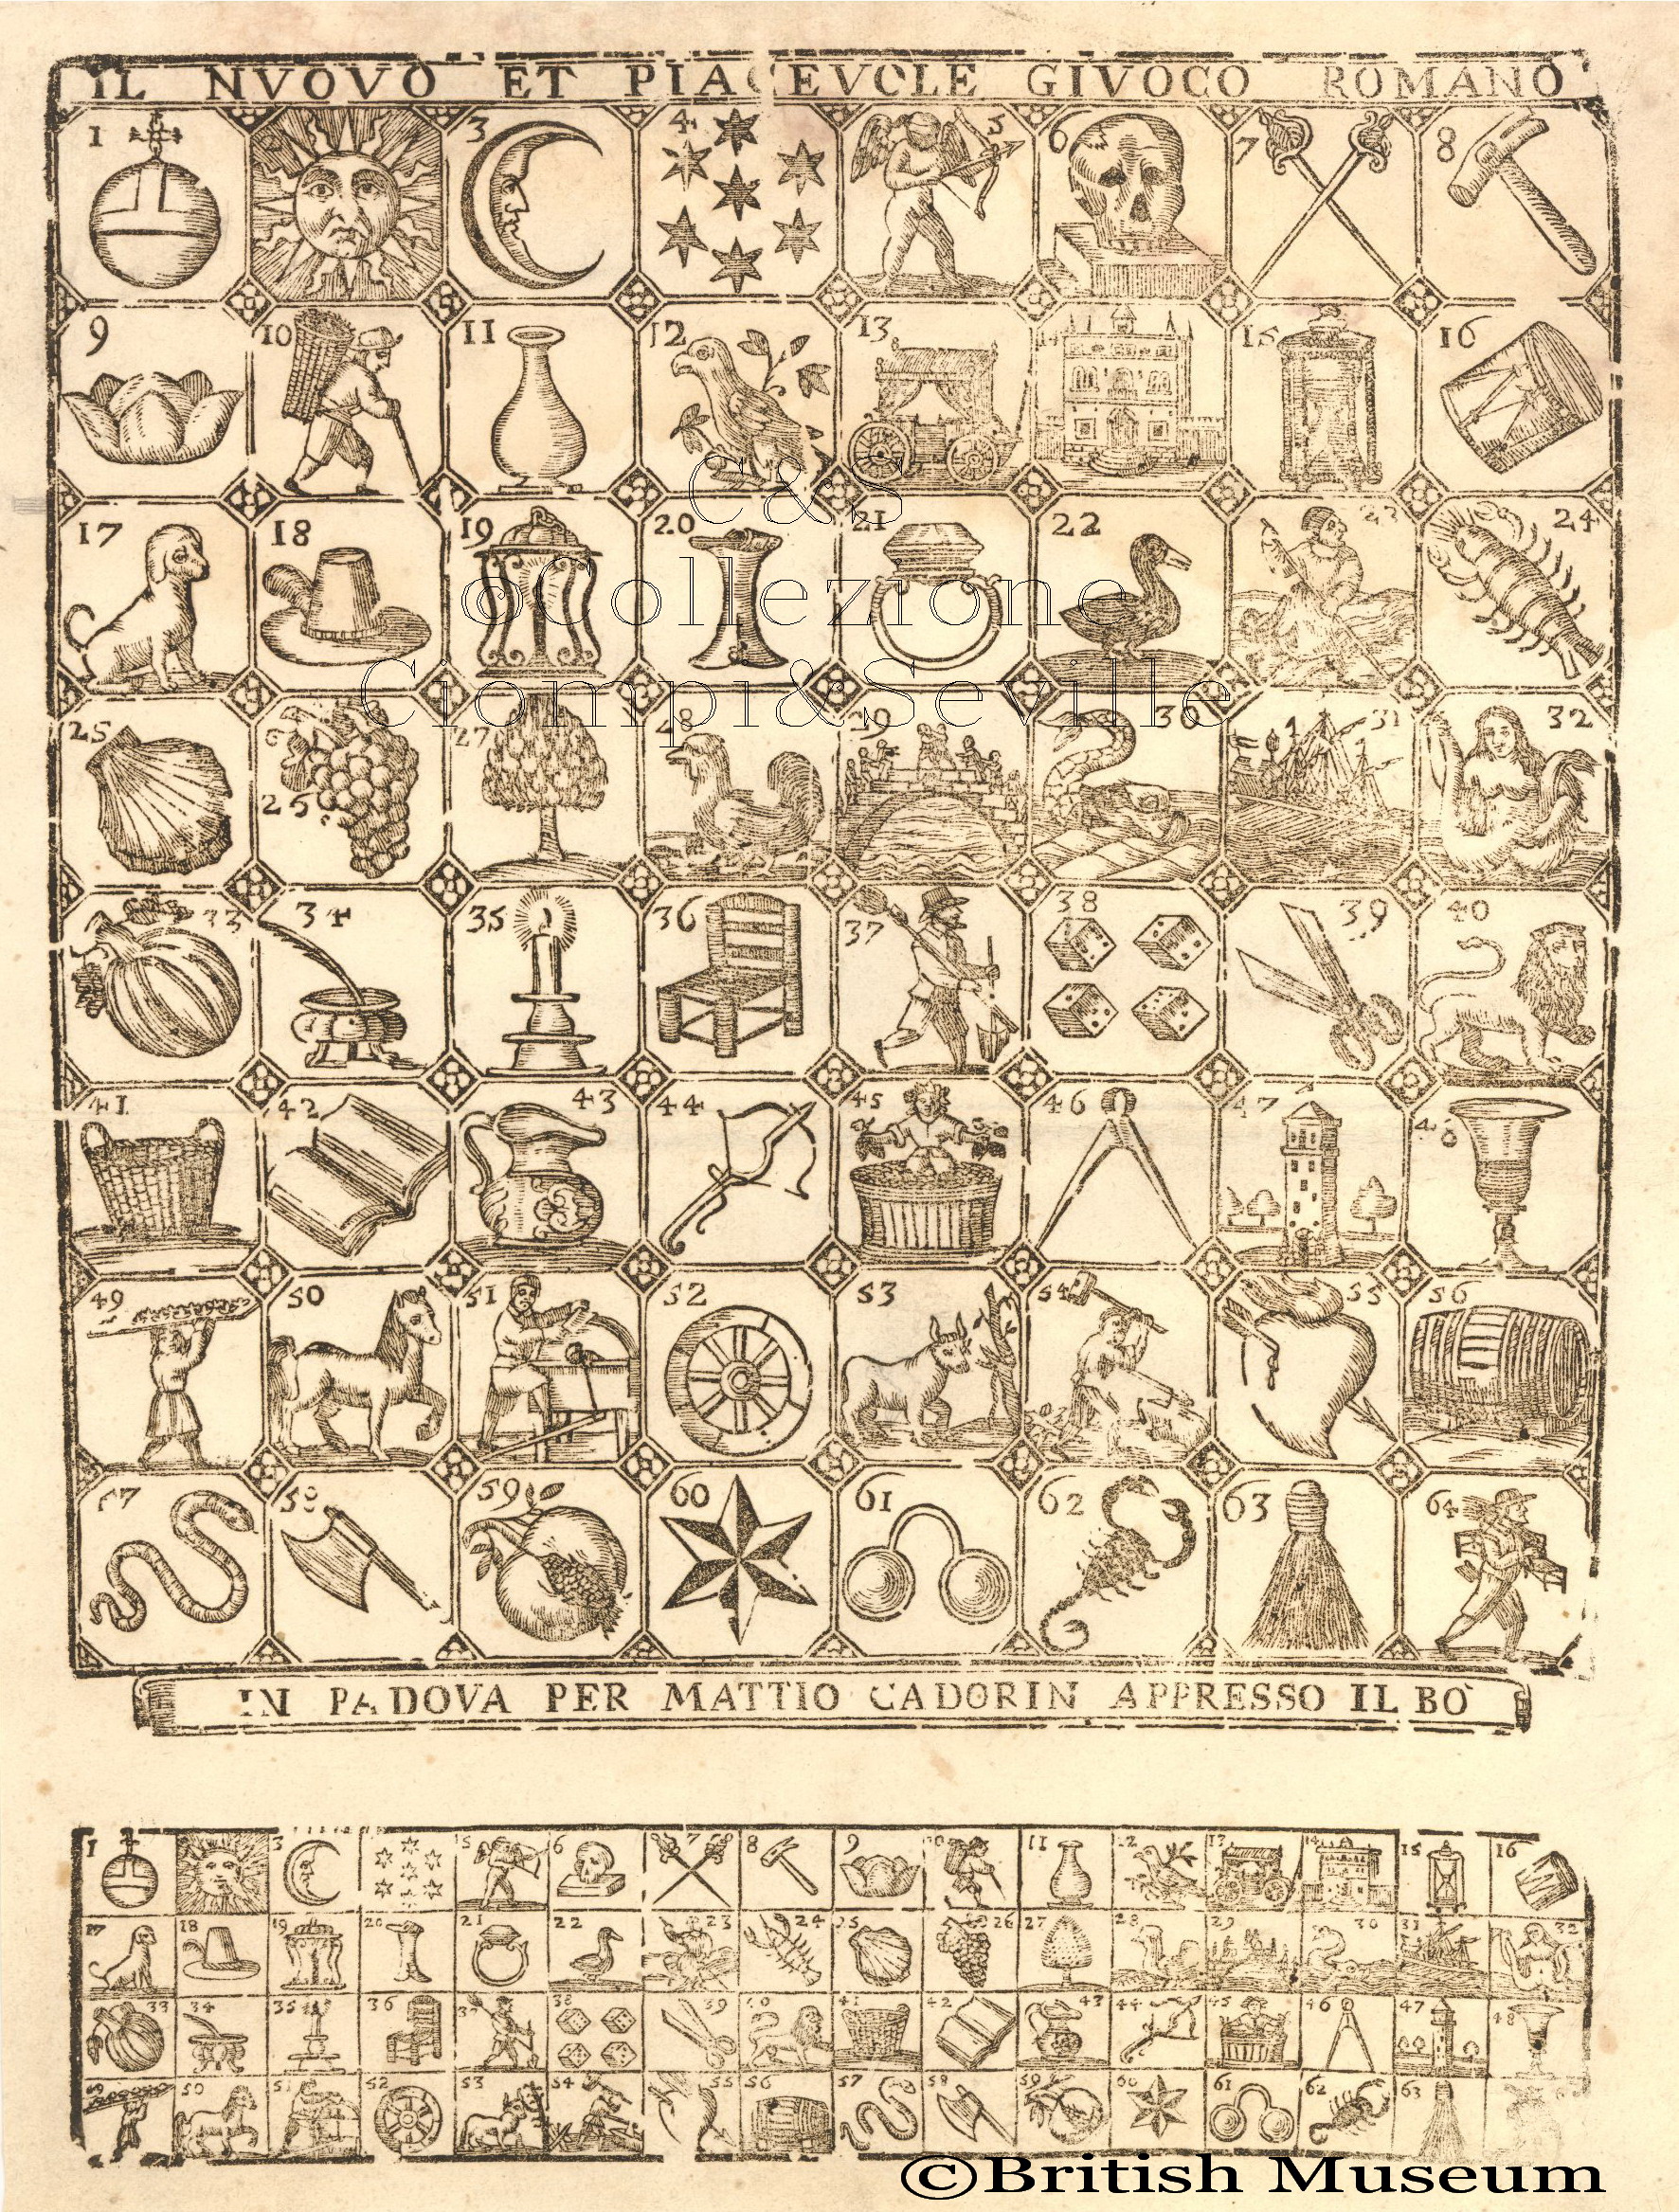 IL NVOVO ET PIACEVOLE GIVOCO ROMANO
1 2 3 4 5 6 7 8
9 10 11 12 13 14 15 16
C&S
17 18 19 20 21 22 23 24
©Collezione
Ciompi&Seville
25 26 27 28 29 30 31 32
33 34 35 36 37 38 39 40
41 42 43 44 45 46 47 48
49 50 51 52 53 54 55 56
57 58 59 60 61 62 63 64
IN PADOVA PER MATTIO CADORIN APPRESSO IL BO
1 3 5 6 7 8 9 10 11 12 13 14 15 16
17 18 19 20 21 22 23 24 25 26 27 28 29 30 31 32
33 34 35 36 37 38 39 40 41 42 43 44 45 46 47 48
49 50 51 52 53 54 55 56 57 58 59 60 61 62 63
©British Museum